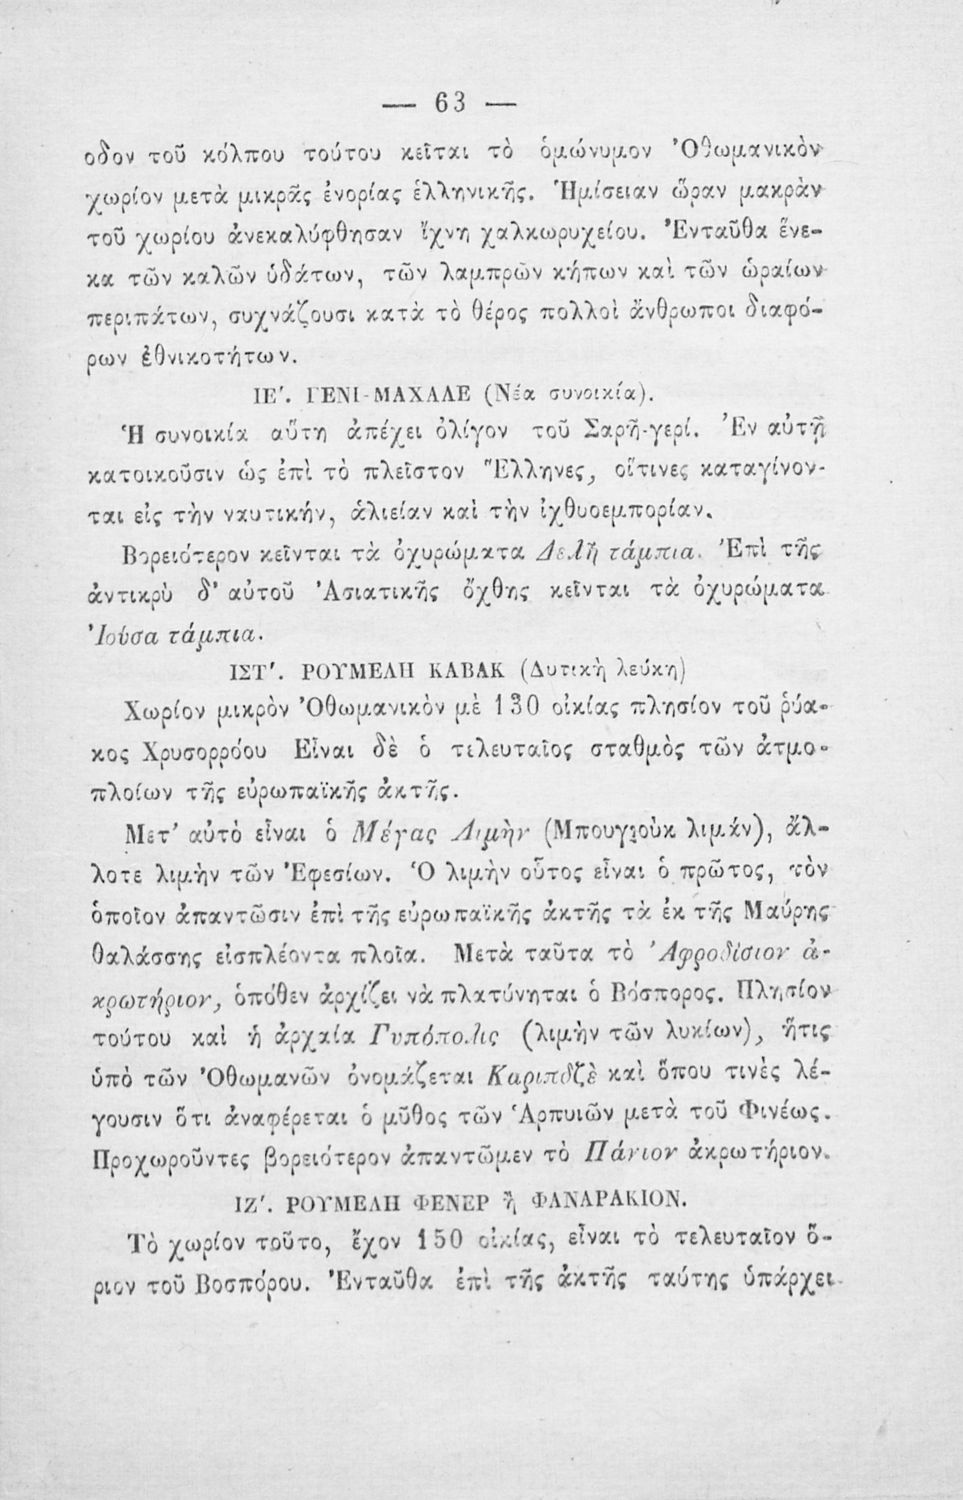 — 63 —
οδον τοῦ κόλπου τούτου κεῖται τὸ ὁμώνυμον Ὀθωμανικὸν
χωρίον μετὰ μικρᾶς ἐνορίας ἑλληνικῆς. Ἡμίσειαν ὥραν μακρὰν
τοῦ χωρίου ἀνεκαλύφθησαν ἴχνη χαλκωρυχείου. Ἐνταῦθα ἕνε-
κα τῶν καλῶν ὑδάτων, τῶν λαμπρῶν κήπων καὶ τῶν ὡραίων
περιπάτων, συχνάζουσι κατὰ τὸ θέρος πολλοὶ ἄνθρωποι διαφό-
ρων ἐθνικοτήτων.
ΙΕʹ. ΓΕΝΙ-ΜΑΧΑΛΕ (Νέα συνοικία).
Ἡ συνοικία αὕτη ἀπέχει ὀλίγον τοῦ Σαρῆ-γερί. Ἐν αὐτῇ
κατοικοῦσιν ὡς ἐπὶ τὸ πλεῖστον Ἕλληνες, οἵτινες καταγίνον-
ται εἰς τὴν ναυτικήν, ἁλιείαν καὶ τὴν ἰχθυοεμπορίαν.
Βορειότερον κεῖνται τὰ ὀχυρώματα Δελῆ τάμπια. Ἐπὶ τῆς
ἀντικρὺ δ' αὐτοῦ Ἀσιατικῆς ὄχθης κεῖνται τὰ ὀχυρώματα
Ἰοῦσα τάμπια.
ΙΣΤʹ. ΡΟΥΜΕΛΗ ΚΑΒΑΚ (Δυτικὴ λεύκη)
Χωρίον μικρὸν Ὀθωμανικὸν μὲ 130 οἰκίας πλησίον τοῦ ῥύα-
κος Χρυσορρόου Εἶναι δὲ ὁ τελευταῖος σταθμὸς τῶν ἀτμο-
πλοίων τῆς εὐρωπαϊκῆς ἀκτῆς.
Μετ' αὐτὸ εἶναι ὁ Μέγας Λιμὴν (Μπουγιοὺκ λιμάν), ἄλ-
λοτε λιμὴν τῶν Ἐφεσίων. Ὁ λιμὴν οὗτος εἶναι ὁ πρῶτος, τὸν
ὁποῖον ἀπαντῶσιν ἐπὶ τῆς εὐρωπαϊκῆς ἀκτῆς τὰ ἐκ τῆς Μαύρης
θαλάσσης εἰσπλέοντα πλοῖα. Μετὰ ταῦτα τὸ Ἀφροδίσιον ἀ-
κρωτήριον, ὁπόθεν ἀρχίζει νὰ πλατύνηται ὁ Βόσπορος. Πλησίον
τούτου καὶ ἡ ἀρχαία Γυπόπολις (λιμὴν τῶν λυκίων), ἥτις
ὑπὸ τῶν Ὀθωμανῶν ὀνομάζεται Καριπδζὲ καὶ ὅπου τινὲς λέ-
γουσιν ὅτι ἀναφέρεται ὁ μῦθος τῶν Ἁρπυιῶν μετὰ τοῦ Φινέως.
Προχωροῦντες βορειότερον ἀπαντῶμεν τὸ Πάνιον ἀκρωτήριον.
ΙΖʹ. ΡΟΥΜΕΛΗ ΦΕΝΕΡ ἢ ΦΑΝΑΡΑΚΙΟΝ.
Τὸ χωρίον τοῦτο, ἔχον 150 οἰκίας, εἶναι τὸ τελευταῖον ὅ-
ριον τοῦ Βοσπόρου. Ἐνταῦθα ἐπὶ τῆς ἀκτῆς ταύτης ὑπάρχει